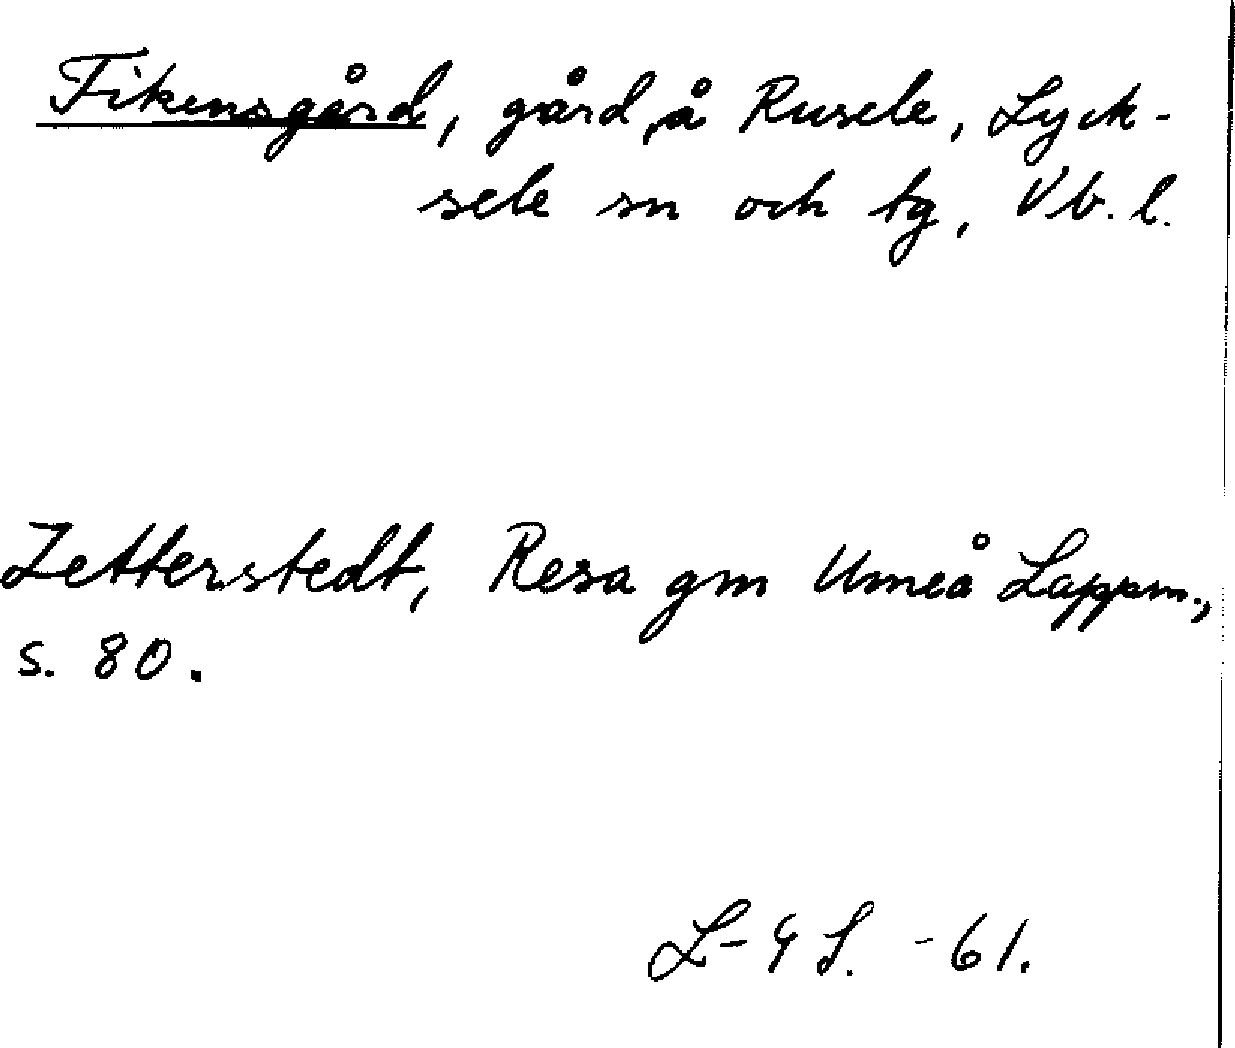 Fikensgård, gård, å Rusele, Lyck-
sele sn och tg, Vb. l.
Zetterstedt, Resa gm Umeå Lappm.,
s. 80.
L-G S. -61.